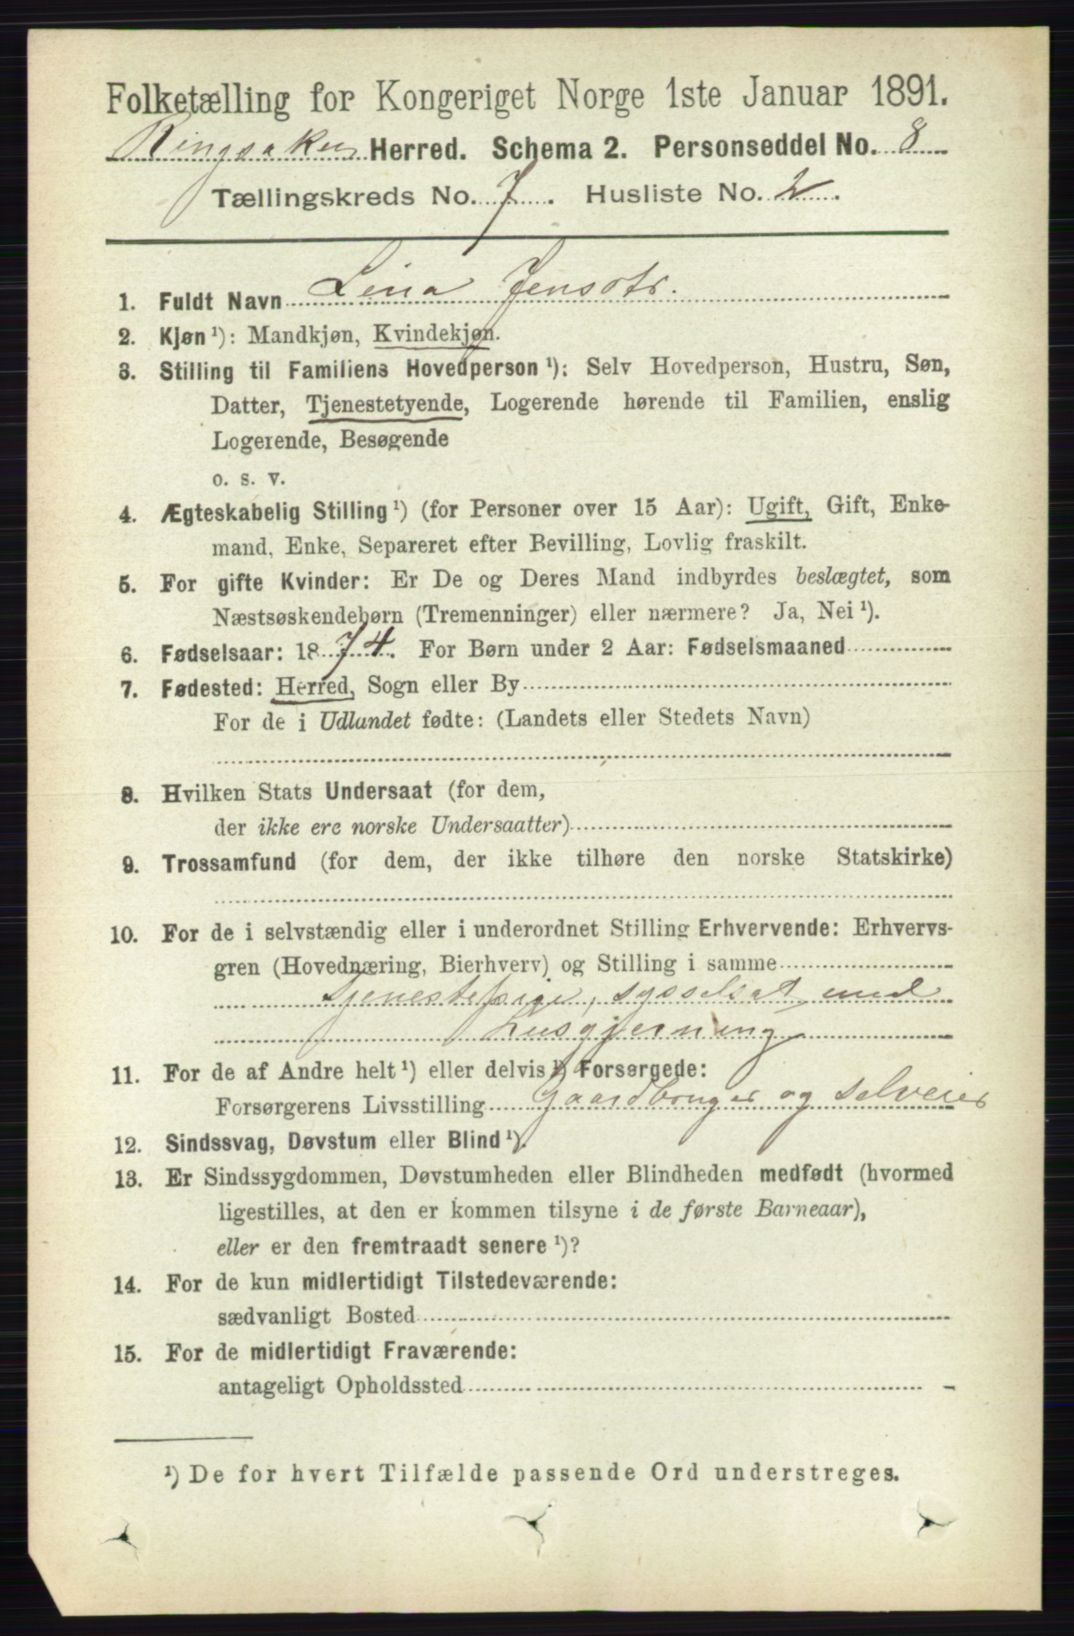 Folketælling for Kongeriget Norge 1ste Januar 1891.
Ringsaker Herred. Schema 2. Personseddel No. 8
Tællingskreds No. 7. Husliste No. 2.
1. Fuldt Navn Lina Jensdtr.
2. Kjøn ¹): Mandkjøn, Kvindekjøn.
3. Stilling til Familiens Hovedperson ¹): Selv Hovedperson, Hustru, Søn,
Datter, Tjenestetyende, Logerende hørende til Familien, enslig
Logerende, Besøgende
o. s. v.
4. Ægteskabelig Stilling ¹) (for Personer over 15 Aar): Ugift, Gift, Enke-
mand, Enke, Separeret efter Bevilling, Lovlig fraskilt.
5. For gifte Kvinder: Er De og Deres Mand indbyrdes beslægtet, som
Næstsøskendebørn (Tremenninger) eller nærmere? Ja, Nei ¹).
6. Fødselsaar: 1874. For Børn under 2 Aar: Fødselsmaaned
7. Fødested: Herred, Sogn eller By
For de i Udlandet fødte: (Landets eller Stedets Navn)
8. Hvilken Stats Undersaat (for dem,
der ikke ere norske Undersaatter)
9. Trossamfund (for dem, der ikke tilhøre den norske Statskirke)
10. For de i selvstændig eller i underordnet Stilling Erhvervende: Erhvervs-
gren (Hovednæring, Bierhverv) og Stilling i samme
Tjenestepige, sysselsat med
husgjerning
11. For de af Andre helt ¹) eller delvis ¹) Forsørgede:
Forsørgerens Livsstilling Gaardbruger og Selveier
12. Sindssvag, Døvstum eller Blind ¹).
13. Er Sindssygdommen, Døvstumheden eller Blindheden medfødt (hvormed
ligestilles, at den er kommen tilsyne i de første Barneaar),
eller er den fremtraadt senere ¹)?
14. For de kun midlertidigt Tilstedeværende:
sædvanligt Bosted
15. For de midlertidigt Fraværende:
antageligt Opholdssted
¹) De for hvert Tilfælde passende Ord understreges.